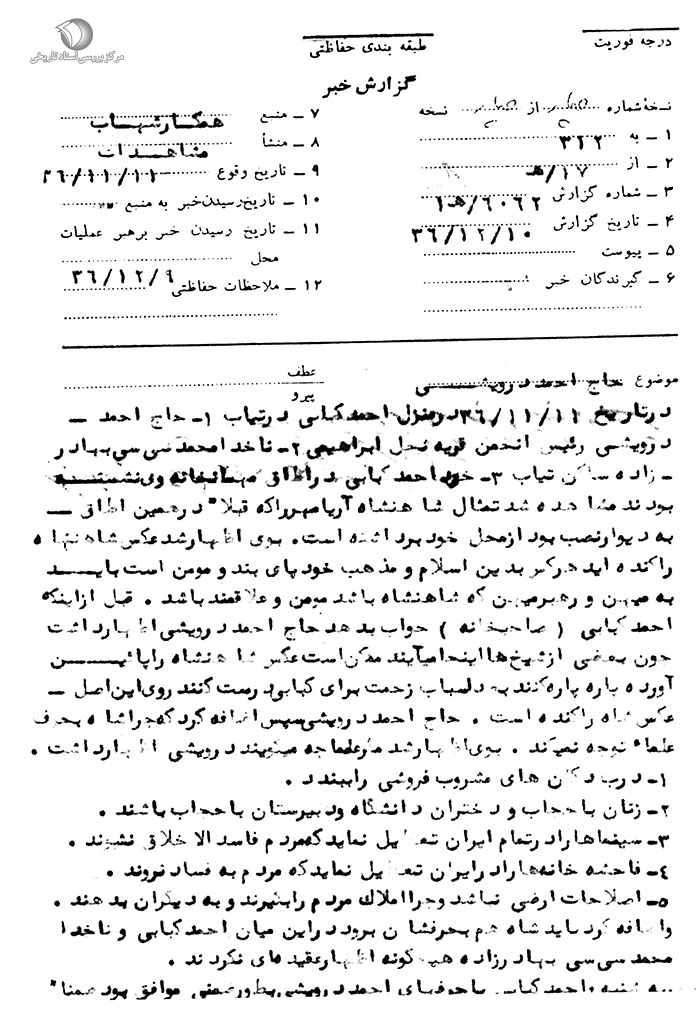 مرکز بررسی اسناد تاریخی
درجه فوریت
طبقه بندی حفاظتی
گزارش خبر
نسخهٔ شماره از نسخه
۱ ـ به ۳۱۲
۲ ـ از ۱۷/هـ
۳ ـ شماره گزارش ۶۰۶۲/هـ۱
۴ ـ تاریخ گزارش ۳۶/۱۲/۱۰
۵ ـ پیوست
۶ ـ گیرندگان خبر
۷ ـ منبع همکار شهاب
۸ ـ منشأ مشاهدات
۹ ـ تاریخ وقوع ۳۶/۱۱/۱۱
۱۰ ـ تاریخ رسیدن خبر به منبع
۱۱ ـ تاریخ رسیدن خبر برهبر عملیات
محل ۳۶/۱۲/۹
۱۲ ـ ملاحظات حفاظتی
موضوع حاج احمد درویشی
عطف
پیرو
در تاریخ ۳۶/۱۱/۱۱ در منزل احمد کبابی در تیاب ۱ـ حاج احمد ـ
درویشی رئیس انجمن قریه نخل ابراهیمی ۲ـ ناخدا محمد سی سی بهادر
ـ زاده ساکن تیاب ۳ـ خود احمد کبابی در اطاق مهمانخانه وی نشسته
بودند مشاهده شد تمثال شاهنشاه آریامهر را که قبلا" در همین اطاق ـ
به دیوار نصب بود از محل خود برداشته است. بوی اظهار شد عکس شاهنشاه
را کنده اید هر کس بدین اسلام و مذهب خود پای بند و مومن است باید
به میهن و رهبر میهن که شاهنشاه باشد مومن و علاقمند باشد . قبل از اینکه
احمد کبابی ( صاحبخانه ) جواب بدهد حاج احمد درویشی اظهار داشت
چون بعضی از شیخ ها اینجا میآیند ممکن است عکس شاهنشاه را پائین
آورده پاره پاره کنند به اسباب زحمت برای کبابی درست کنند روی این اصل ـ
عکس شاه را کنده است . حاج احمد درویشی سپس اضافه کرد که چرا شاه بحرف
علما" توجه نمیکند . بوی اظهار شد مگر علما چه میگویند درویشی اظهار داشت .
۱ـ درب دکان های مشروب فروشی را ببندد .
۲ـ زنان با حجاب و دختران دانشگاه و دبیرستان با حجاب باشند .
۳ـ سینماها را در تمام ایران تعطیل نماید که مردم فاسد الاخلاق نشوند .
۴ـ فاحشه خانه ها را در ایران تعطیل نماید که مردم به فساد نروند .
۵ـ اصلاحات ارضی نباشد و چرا املاک مردم را بگیرند و به دیگران بدهند .
و اضافه کرد باید شاه هم بحرفشان برود در این میان احمد کبابی و ناخدا
محمد سی سی بهادر زاده هیچگونه اظهار عقیده ای نکردند .
احمد کبابی با حرفهای احمد درویشی بطور ضمنی موافق بود ضمنا"